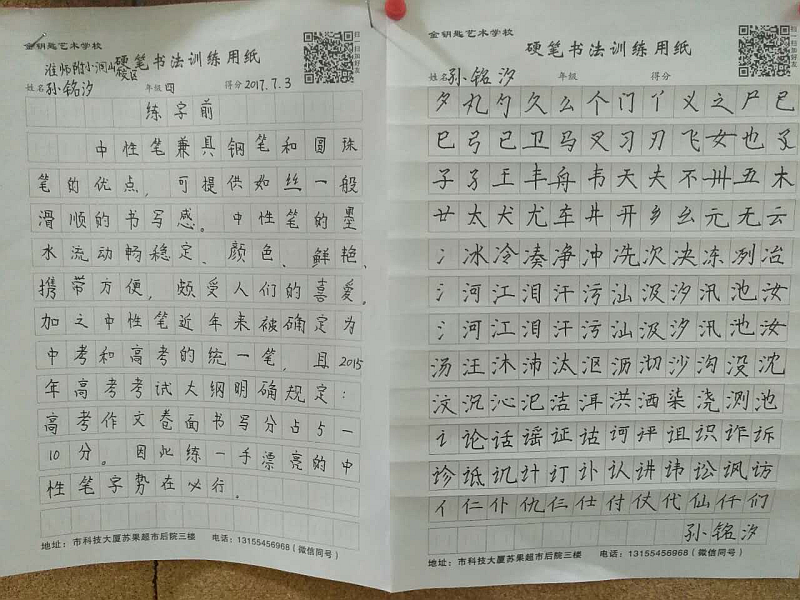 金钥匙艺术学校
硬笔书法训练用纸
扫一扫加好友
淮师附小洞山校区
姓名 孙铭汐 年级 四 得分 2017.7.3
练字前
中性笔兼具钢笔和圆珠
笔的优点，可提供如丝一般
滑顺的书写感。中性笔的墨
水流动畅稳定、颜色、鲜艳、
携带方便，颇受人们的喜爱。
加之中性笔近年来被确定为
中考和高考的统一笔，且2015
年高考考试大纲明确规定：
高考作文卷面书写分占5—
10分。因此练一手漂亮的中
性笔字势在必行。
地址：市科技大厦苏果超市后院三楼 电话：13155456968（微信同号）
金钥匙艺术学校
硬笔书法训练用纸
扫一扫加好友
姓名 孙铭汐 年级 得分
夕丸勺久么个门丫义之尸巳
巳弓己卫马叉习刃飞女也孑
子孓王丰舟韦天夫不卅五木
廿太犬尤车井开乡幺元无云
冫冰冷凑净冲冼次决冻冽冶
氵河江泪汗污汕汲汐汛池汝
氵河江泪汗污汕汲汐汛池汝
汤汪沐沛汰沤沥沏沙沟没沈
汶沉沁汜洁洱洪洒染浇测池
讠论话谣证诂诃评诅识诈诉
诊诋讥计订讣认讲讳讼讽访
亻仁仆仇仨仕付仗代仙仟们
孙铭汐
地址：市科技大厦苏果超市后院三楼 电话：13155456968（微信同号）